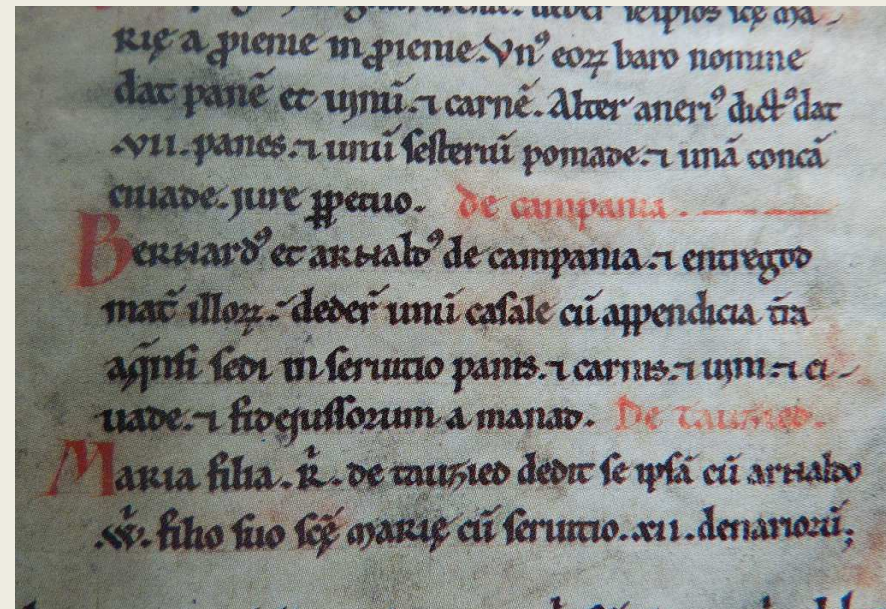 deder seipsos scę ma-
rię a ꝓieme in ꝓieme. Vn⁹ eoꝝ baro nomine
dat panē et uynū. ⁊ carnē. Alter aneri⁹ dict⁹ dat
.VII. panes. ⁊ unū sesteriū pomade. ⁊ unā concā
ciuade. jure ꝑpetuo. De campania.
Bernard⁹ et arnald⁹ de campania. ⁊ entregod
mat̄ illoꝝ. deder̄ unū casale cū appendicia t̄ra
aq̄nsi sedi in seruitio panis. ⁊ carnis. ⁊ uyni. ⁊ ci-
uade. ⁊ fidejussorum a manad. De tauzied.
Maria filia. R̄. de tauzied dedit se ipsā cū arnaldo
.W̄. filio suo scę marię cū seruitio. xii. denarioꝝ;